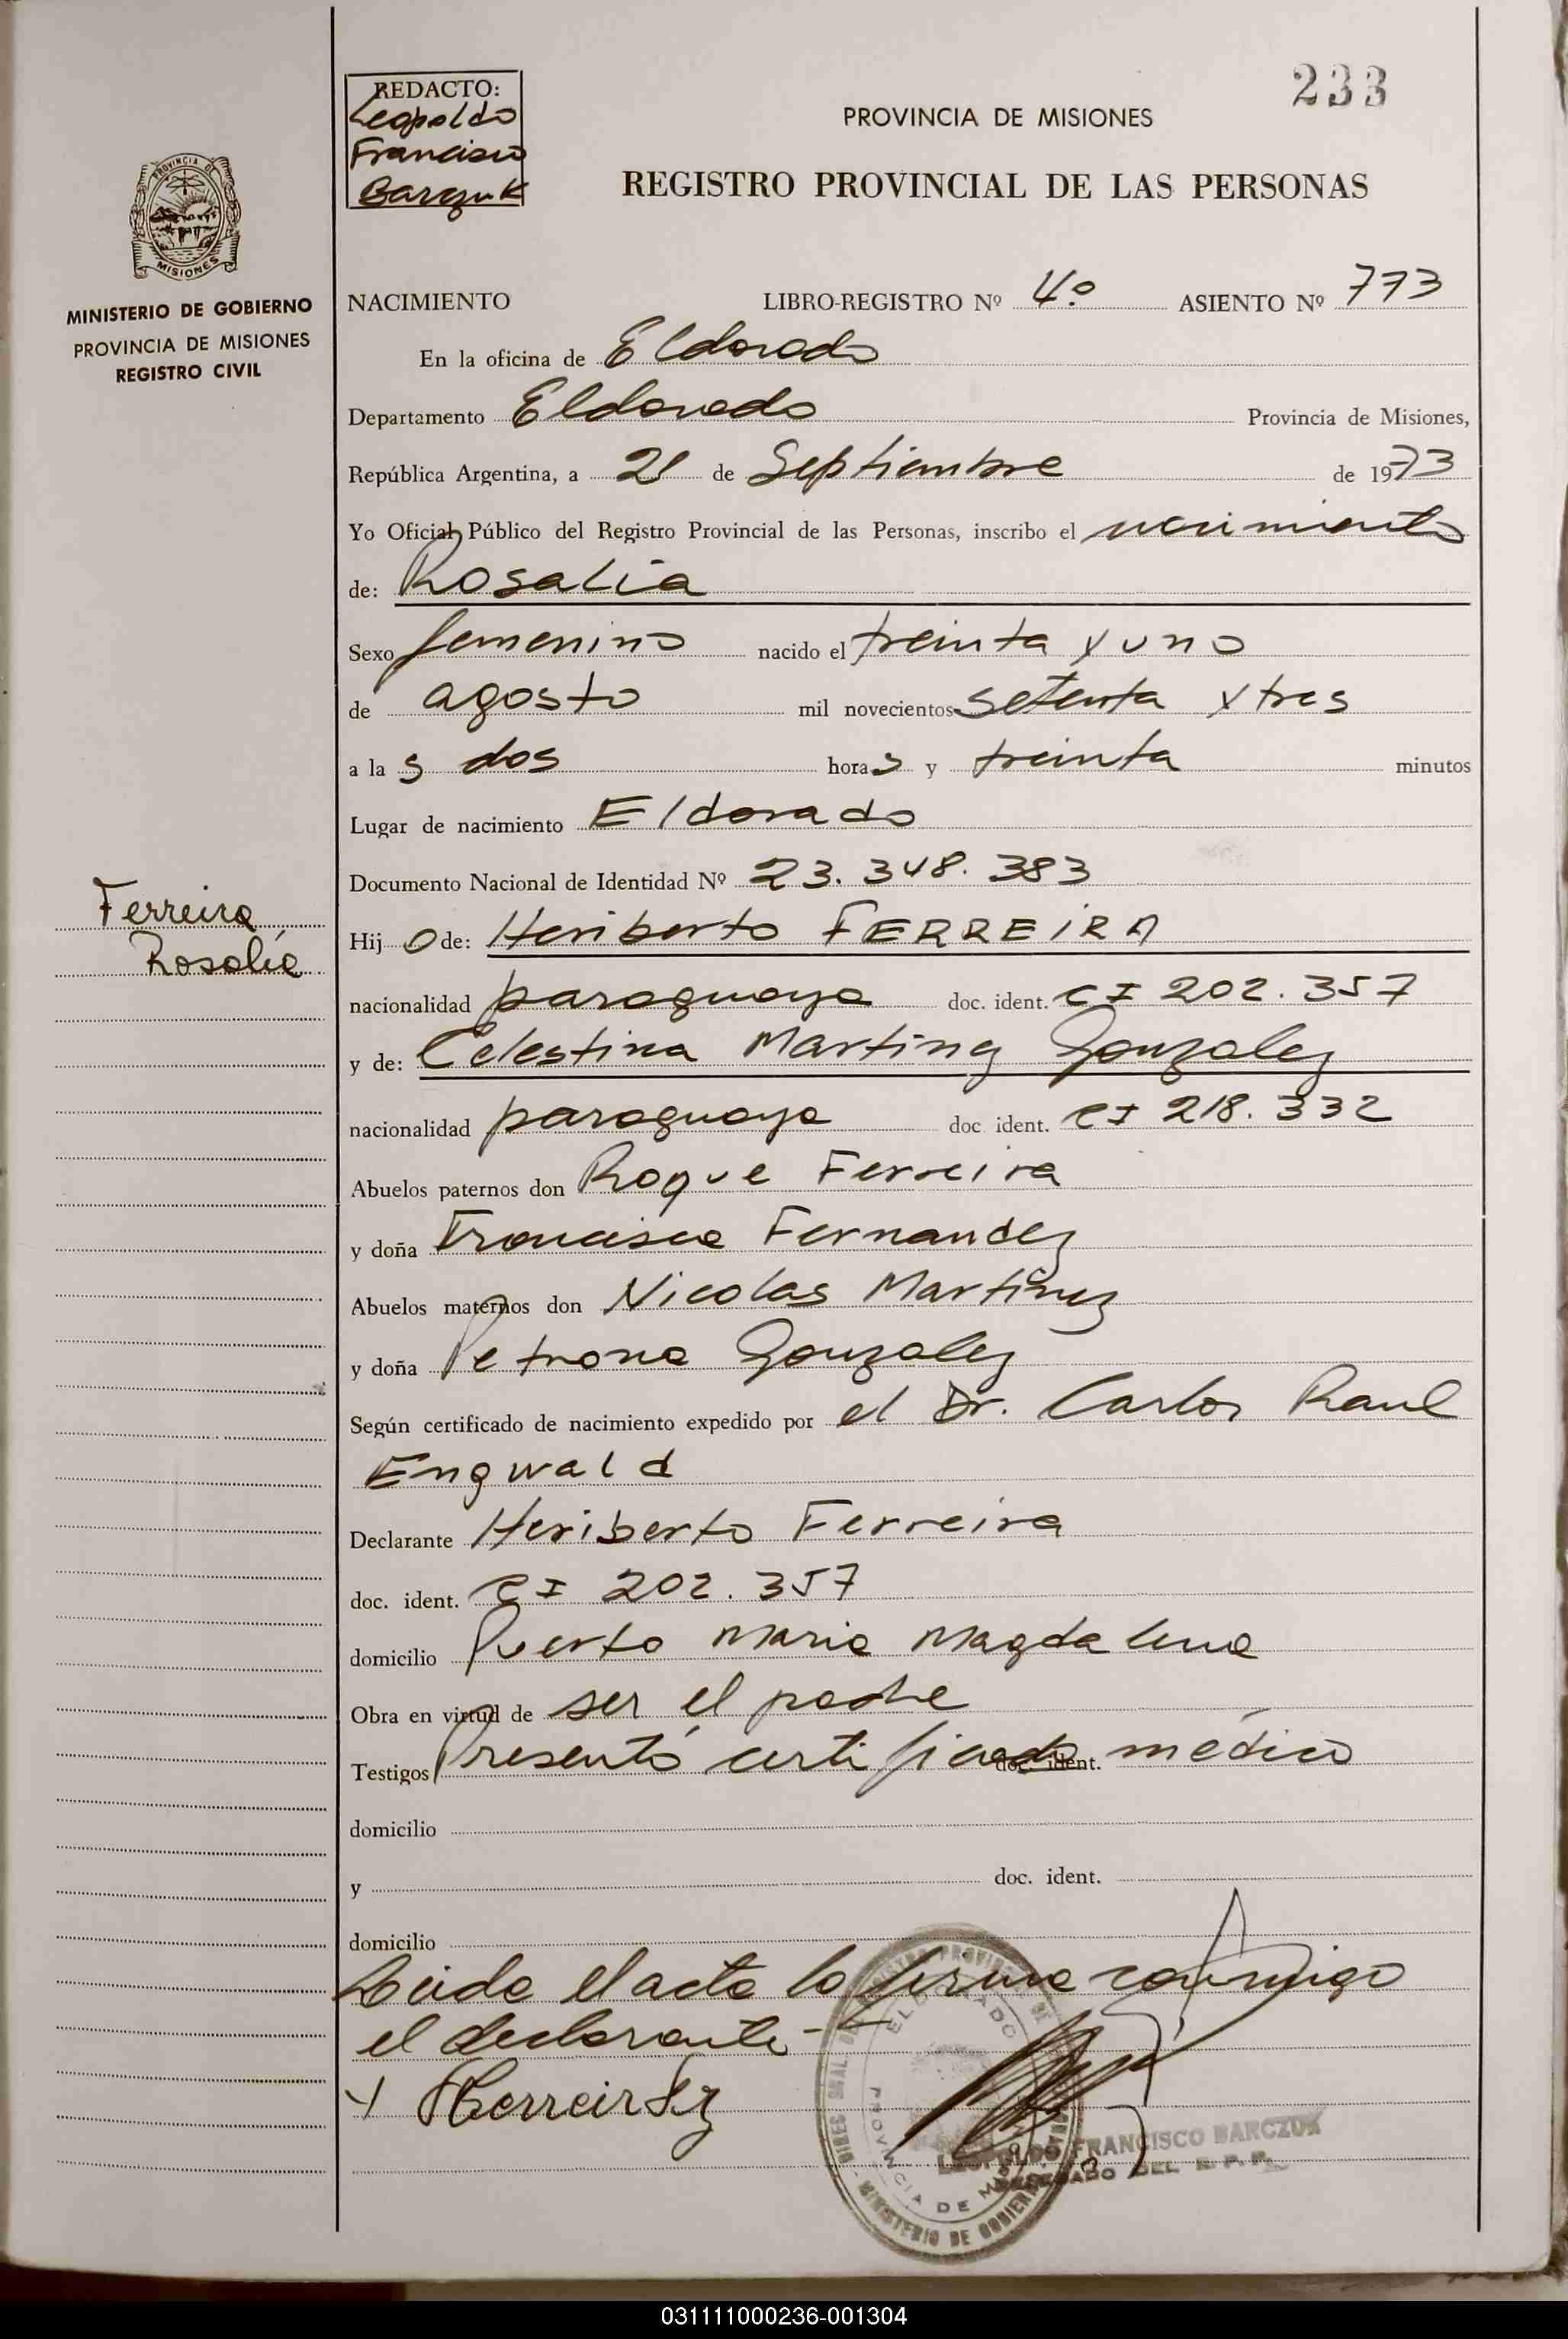 233
REDACTO:
Leopoldo
Francisco
Barczuk
PROVINCIA DE MISIONES
REGISTRO PROVINCIAL DE LAS PERSONAS
PROVINCIA DE
MISIONES
MINISTERIO DE GOBIERNO
PROVINCIA DE MISIONES
REGISTRO CIVIL
NACIMIENTO LIBRO-REGISTRO Nº 4º ASIENTO Nº 773
En la oficina de Eldorado
Departamento Eldorado Provincia de Misiones,
República Argentina, a 21 de Septiembre de 1973
Yo Oficial Público del Registro Provincial de las Personas, inscribo el nacimiento
de: Rosalia
Sexo femenino nacido el treinta y uno
de agosto mil novecientos setenta y tres
a la s dos hora s y treinta minutos
Lugar de nacimiento Eldorado
Documento Nacional de Identidad Nº 23.348.383
Ferreira
Rosalía
Hij o de: Heriberto FERREIRA
nacionalidad paraguaya doc. ident. CI 202.357
y de: Celestina Martinez Gonzalez
nacionalidad paraguaya doc. ident. CI 218.332
Abuelos paternos don Roque Ferreira
y doña Francisca Fernandez
Abuelos maternos don Nicolas Martinez
y doña Petrona Gonzalez
Según certificado de nacimiento expedido por el Dr. Carlos Raul
Engwald
Declarante Heriberto Ferreira
doc. ident. CI 202.357
domicilio Puerto Maria Magdalena
Obra en virtud de ser el padre
Testigos Presentó certificado doc. ident. médico
domicilio
y doc. ident.
domicilio
Leida el acta la firma conmigo
el declarante-
ELDORADO
PROVINCIA DE MISIONES
MINISTERIO DE GOBIERNO
LEOPOLDO FRANCISCO BARCZUK
DELEGADO DEL R. P. P.
031111000236-001304